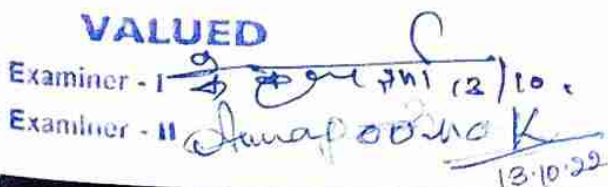 VALUED
Examiner - I 13/10.
Examiner - II Annapoorna K
13.10.22